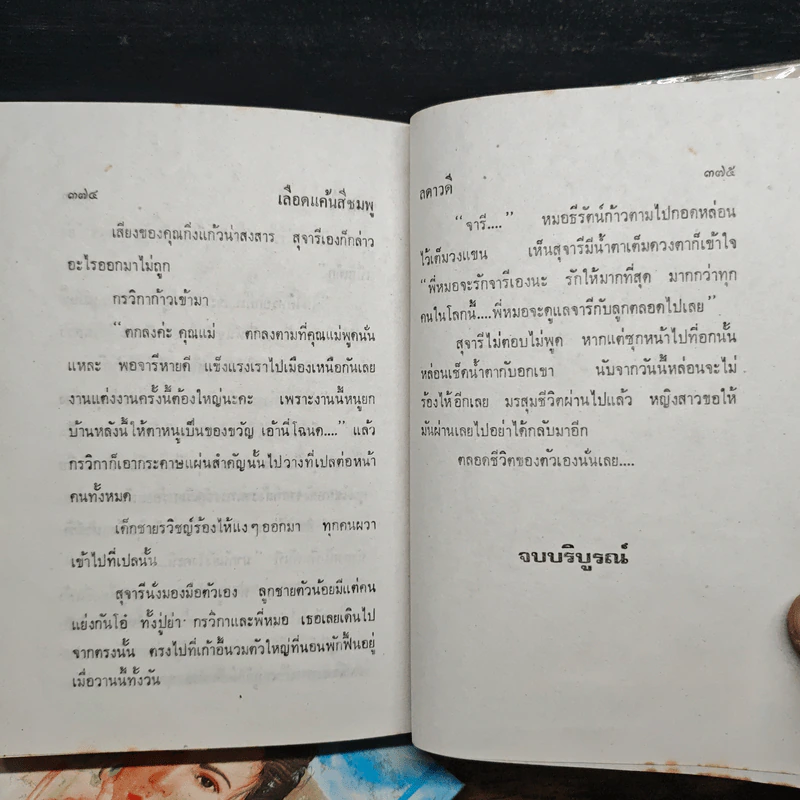 ๓๗๔ เลือดแค้นสีชมพู
เสียงของคุณกิ่งแก้วน่าสงสาร สุจารีเองก็กล่าว
อะไรออกมาไม่ถูก
กรวิกาก้าวเข้ามา
“ตกลงค่ะ คุณแม่ ตกลงตามที่คุณแม่พูดนั่น
แหละ พอจารีหายดี แข็งแรงเราไปเมืองเหนือกันเลย
งานแต่งงานครั้งนี้ต้องใหญ่นะคะ เพราะงานนี้หนูยก
บ้านหลังนี้ให้ตาหนูเป็นของขวัญ เอ้านี่โฉนด....” แล้ว
กรวิกาก็เอากระดาษแผ่นสำคัญนั้นไปวางที่เปลต่อหน้า
คนทั้งหมด
เด็กชายรวิชญ์ร้องไห้แงๆออกมา ทุกคนผวา
เข้าไปที่เปลนั้น
สุจารีนั่งมองมือตัวเอง ลูกชายตัวน้อยมีแต่คน
แย่งกันโอ๋ ทั้งปู่ย่า กรวิกาและพี่หมอ เธอเลยเดินไป
จากตรงนั้น ตรงไปที่เก้าอี้นวมตัวใหญ่ที่นอนพักฟื้นอยู่
เมื่อวานนี้ทั้งวัน
ลดาวดี ๓๗๕
“จารี....” หมอธีรัตน์ก้าวตามไปกอดหล่อน
ไว้เต็มวงแขน เห็นสุจารีมีน้ำตาเต็มดวงตาก็เข้าใจ
“พี่หมอจะรักจารีเองนะ รักให้มากที่สุด มากกว่าทุก
คนในโลกนี้....พี่หมอจะดูแลจารีกับลูกตลอดไปเลย”
สุจารีไม่ตอบไม่พูด หากแต่ซุกหน้าไปที่อกนั้น
หล่อนเช็ดน้ำตากับอกเขา นับจากวันนี้หล่อนจะไม่
ร้องไห้อีกเลย มรสุมชีวิตผ่านไปแล้ว หญิงสาวขอให้
มันผ่านเลยไปอย่าได้กลับมาอีก
ตลอดชีวิตของตัวเองนั่นเลย....
จบบริบูรณ์